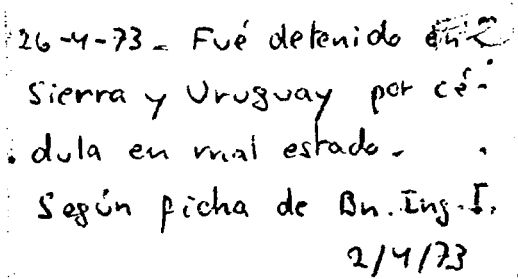 26-4-73- Fué detenido en
Sierra y Uruguay por cé-
dula en mal estado.
Según ficha de Bn. Ing. I.
2/4/73